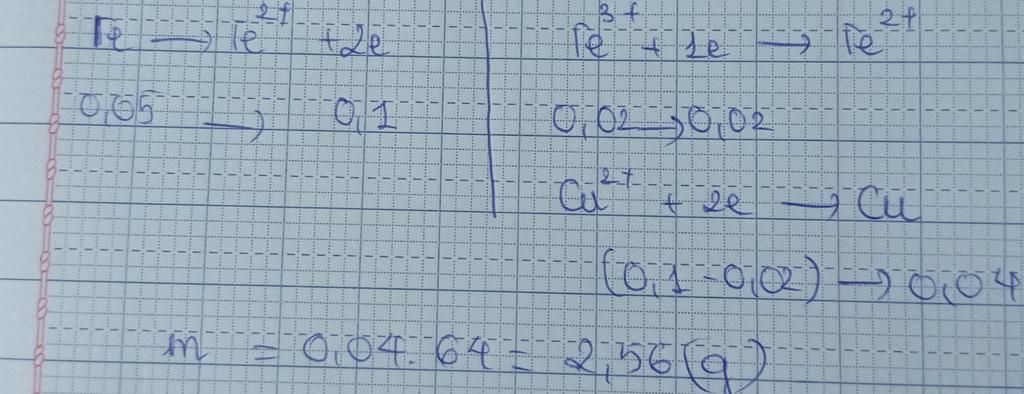 Fe → Fe²⁺ + 2e
0,05 → 0,1
Fe³⁺ + 1e → Fe²⁺
0,02 → 0,02
Cu²⁺ + 2e → Cu
(0,1 - 0,02) → 0,04
m = 0,04 . 64 = 2,56 (g)